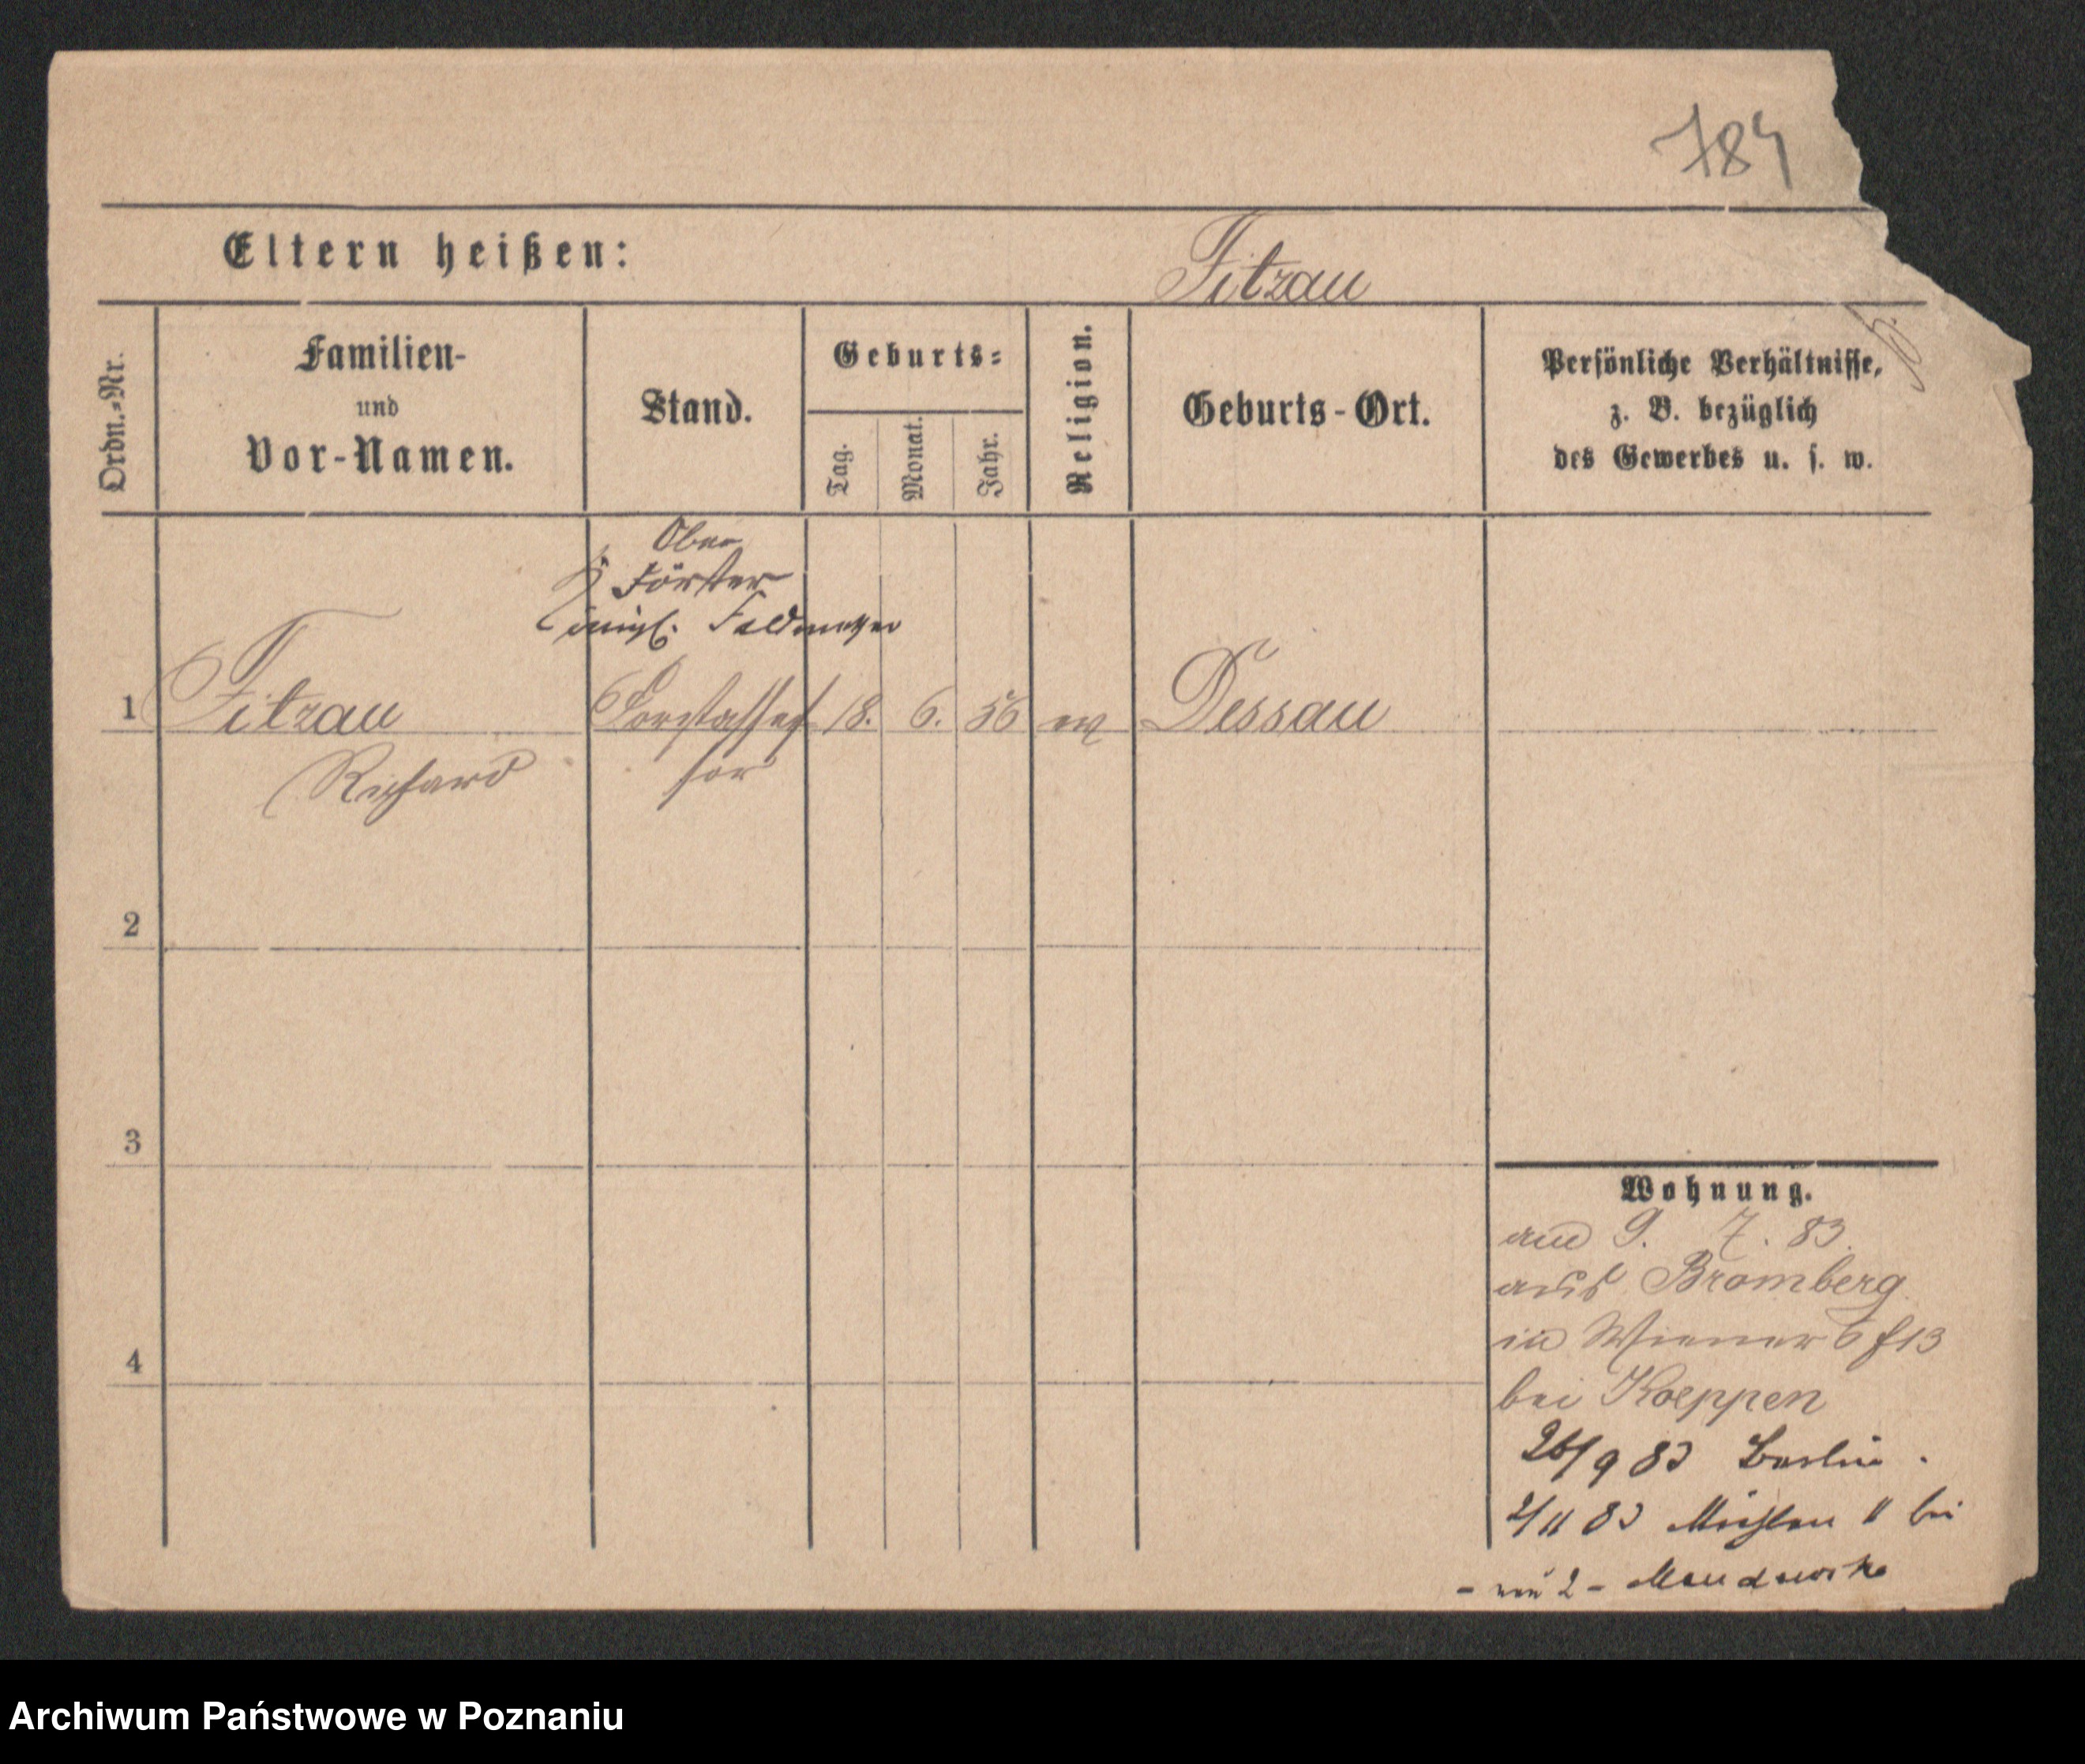 784
Eltern heißen:
Fitzau
Ordn.-Nr.
Familien-
und
Vor-Namen.
Stand.
Geburts-
Tag.
Monat.
Jahr.
Religion.
Geburts-Ort.
Persönliche Verhältnisse,
z. B. bezüglich
des Gewerbes u. s. w.
Ober
Förster
königl. Feldmesser
1 Fitzau Forstasses 18. 6. 56 ev Dessau
Richard sor
2
3
4
Wohnung.
am 9. 7. 83.
aus Bromberg
in Wiener 13
bei Koeppen
26/9 83 Berlin.
2/11 83 Mühlen 11 bei
- 2 -
Archiwum Państwowe w Poznaniu